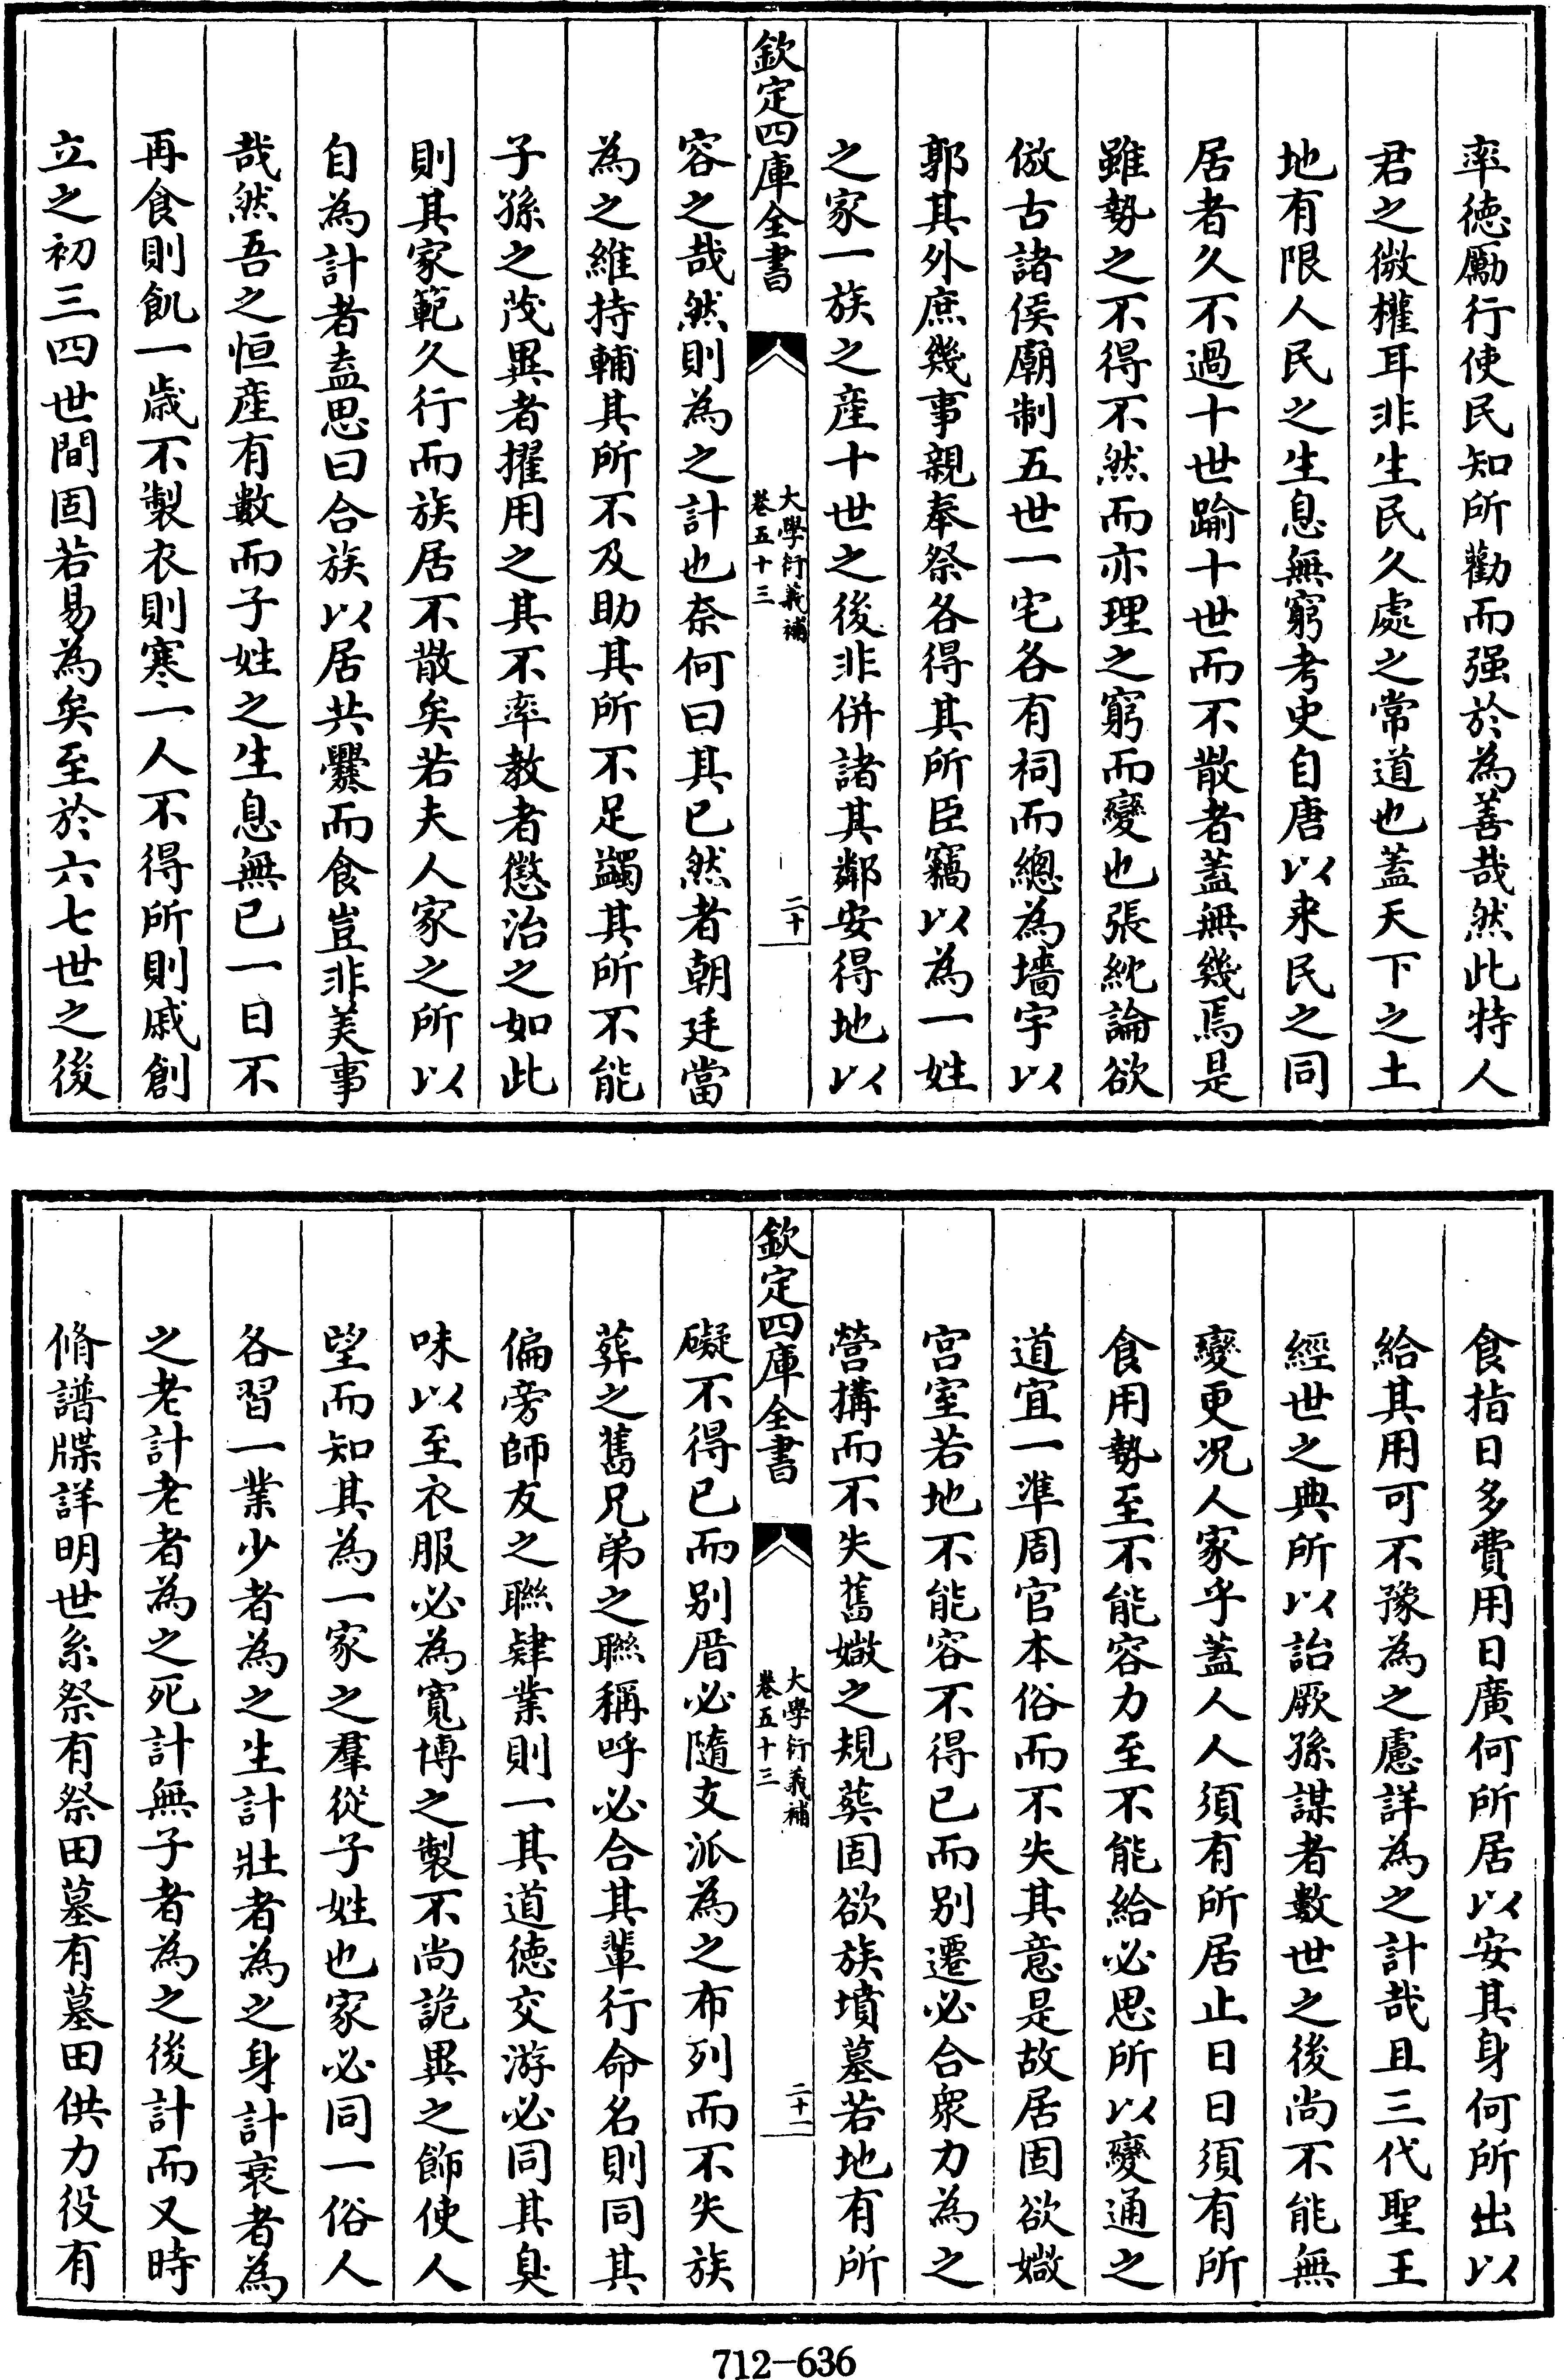 率徳勵行使民知所勸而强於為善哉然此特人
君之微權耳非生民久處之常道也蓋天下之土
地有限人民之生息無窮考史自唐以来民之同
居者久不過十世踰十世而不散者蓋無幾焉是
雖勢之不得不然而亦理之窮而變也張紞論欲
倣古諸侯廟制五世一宅各有祠而總為墻宇以
郭其外庶幾事親奉祭各得其所臣竊以為一姓
之家一族之産十世之後非併諸其鄰安得地以
欽定四庫全書
大學衍義補
卷五十三
二十
容之哉然則為之計也奈何曰其已然者朝廷當
為之維持輔其所不及助其所不足蠲其所不能
子孫之茂異者擢用之其不率教者懲治之如此
則其家範久行而族居不散矣若夫人家之所以
自為計者盍思曰合族以居共爨而食豈非美事
哉然吾之恒産有數而子姓之生息無已一日不
再食則飢一歳不製衣則寒一人不得所則戚創
立之初三四世間固若易為矣至於六七世之後
食指日多費用日廣何所居以安其身何所出以
給其用可不豫為之慮詳為之計哉且三代聖王
經世之典所以詒厥孫謀者數世之後尚不能無
變更况人家乎蓋人人須有所居止日日須有所
食用勢至不能容力至不能給必思所以變通之
道宜一準周官本俗而不失其意是故居固欲媺
宫室若地不能容不得已而别遷必合衆力為之
營搆而不失舊媺之規葬固欲族墳墓若地有所
欽定四庫全書
大學衍義補
卷五十三
二十一
礙不得已而别厝必隨支派為之布列而不失族
葬之舊兄弟之聯稱呼必合其輩行命名則同其
偏旁師友之聯肄業則一其道徳交游必同其臭
味以至衣服必為寬博之製不尚詭異之飾使人
望而知其為一家之羣從子姓也家必同一俗人
各習一業少者為之生計壯者為之身計衰者為
之老計老者為之死計無子者為之後計而又時
脩譜牒詳明世系祭有祭田墓有墓田供力役有
712-636